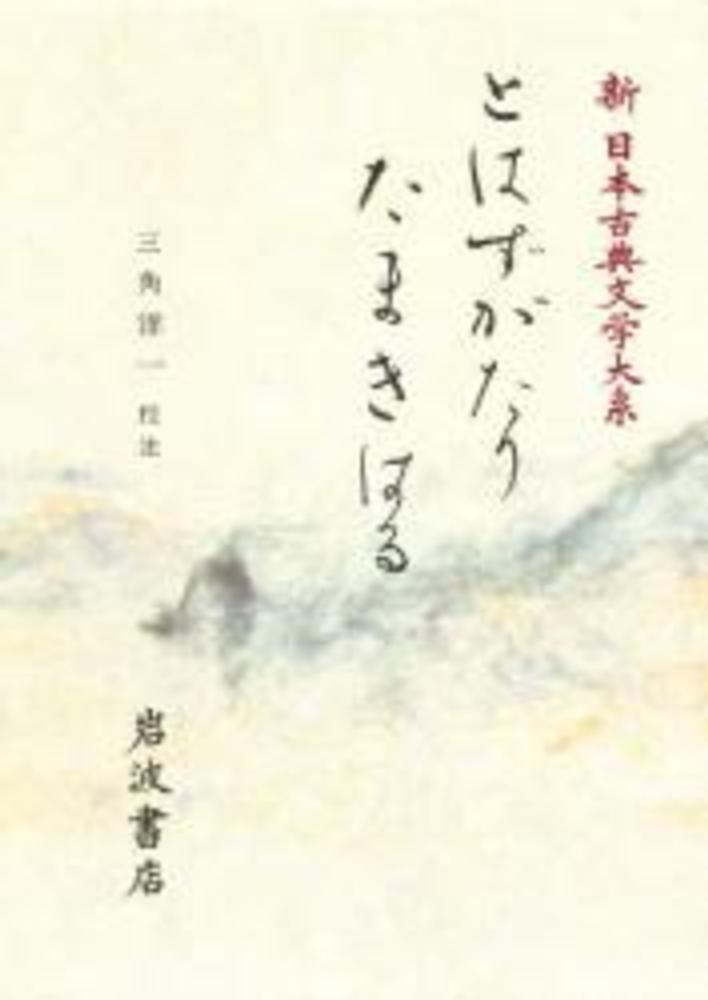 新 日本古典文学大系
とはずがたり
たまきはる
三角洋一 校注
岩波書店